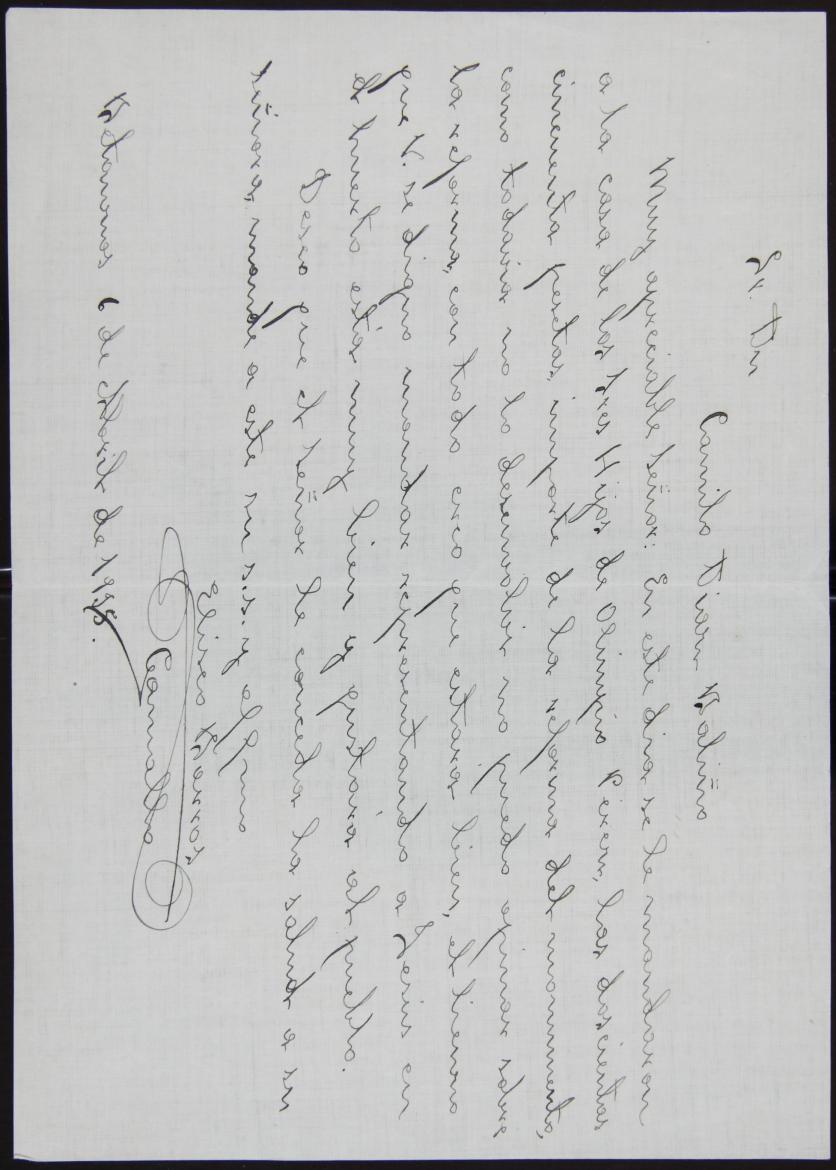 Sr. Dn
Camilo Diaz Baliño
Muy apreciable señor: En este dia se le mandaron
a la casa de los Tres Hijos de Olimpio Perez, las doscientas
cincuenta pesetas, importe de la reforma del monumento,
como todavia no lo desenvolvin no puedo opinar sobre
la reforma, con todo creo que estará bien, el lienzo
que V. se dignó mandar representando a Jesus en
el huerto está muy bien y gustará al pueblo.
Deseo que el Señor le conceda la salud a su
señora, mande a este su s.s. y affmo
Eliseo Barros
Camallo
6 de Abril de